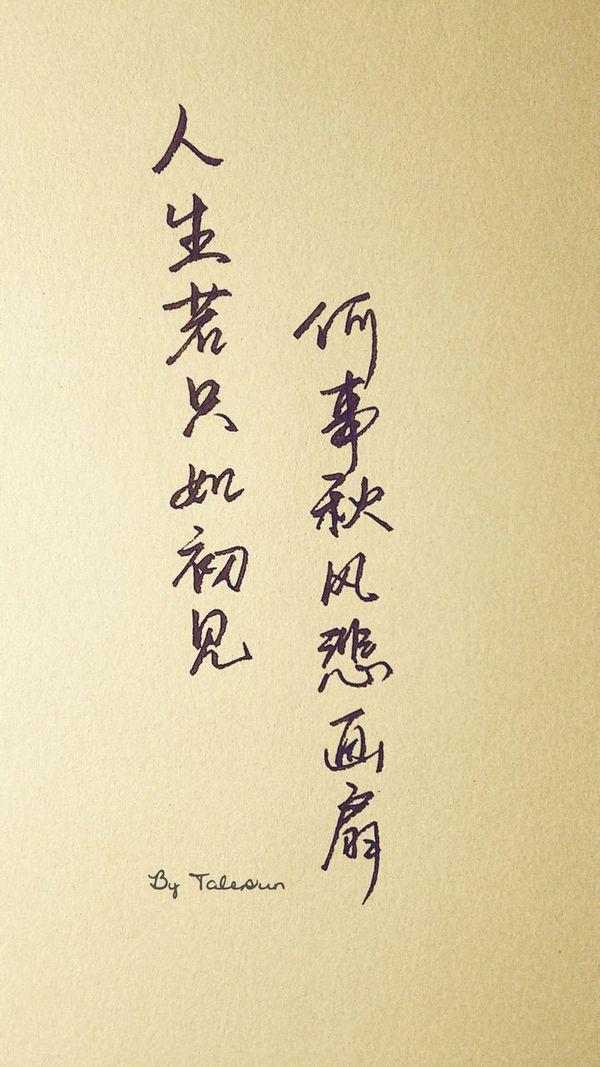 人生若只如初见
何事秋风悲画扇
By Talesun